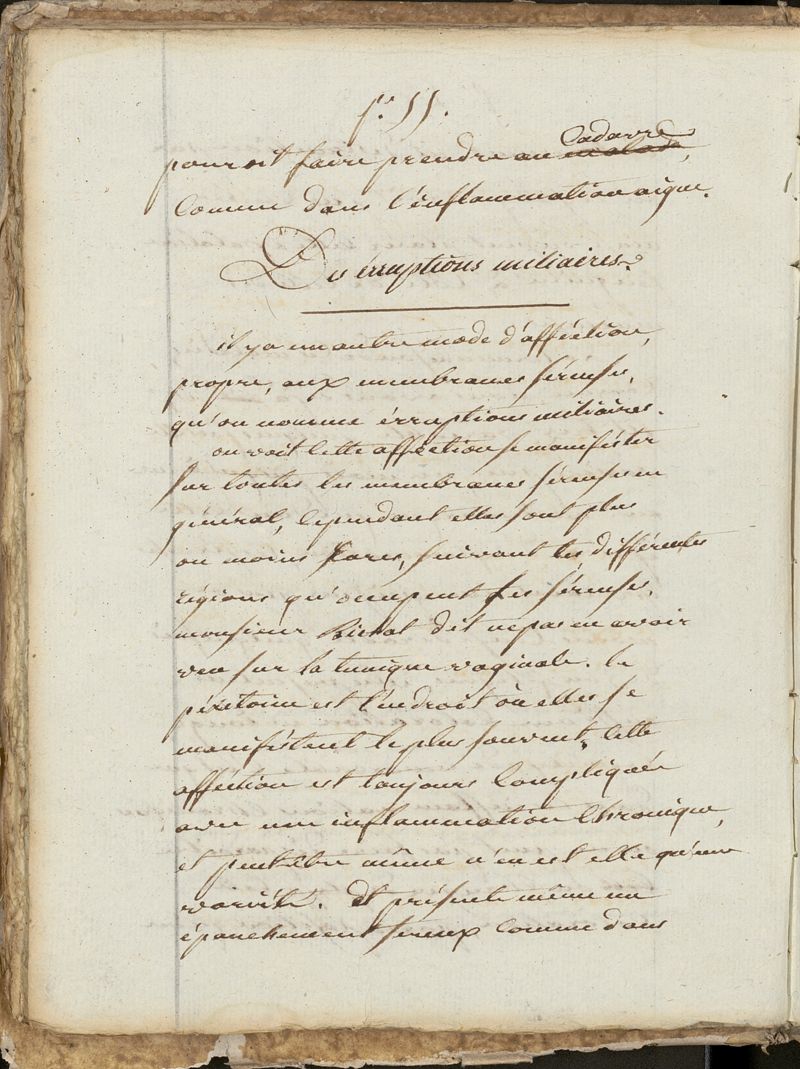 f.° 55.
Cadavre
pouroit faire prendre au malade,
Comme dans l'éinflammation aigue.
Des érruptions miliaires.
il y a un autre mode d'afféction,
propre, aux membranes séreuses,
qu'on nomme érruptions miliaires.
on voit Cette afféction se manifester
sur toutes les membranes séreuses en
général, Cependant elles sont plus
ou moins Rares, suivant les différentes
régions qu'occupent les séreuses.
monsieur Bichat dit ne pas en avoir
veu sur la tunique vaginale. le
péritoine est l'endroit où elles se
manifestent le plus souvent, Cette
afféction est toujours Compliquée
avec une inflammation Chronique,
et peutêtre même n'en est elle qu'une
variété. Et présente même un
épanchement sereux Comme dans